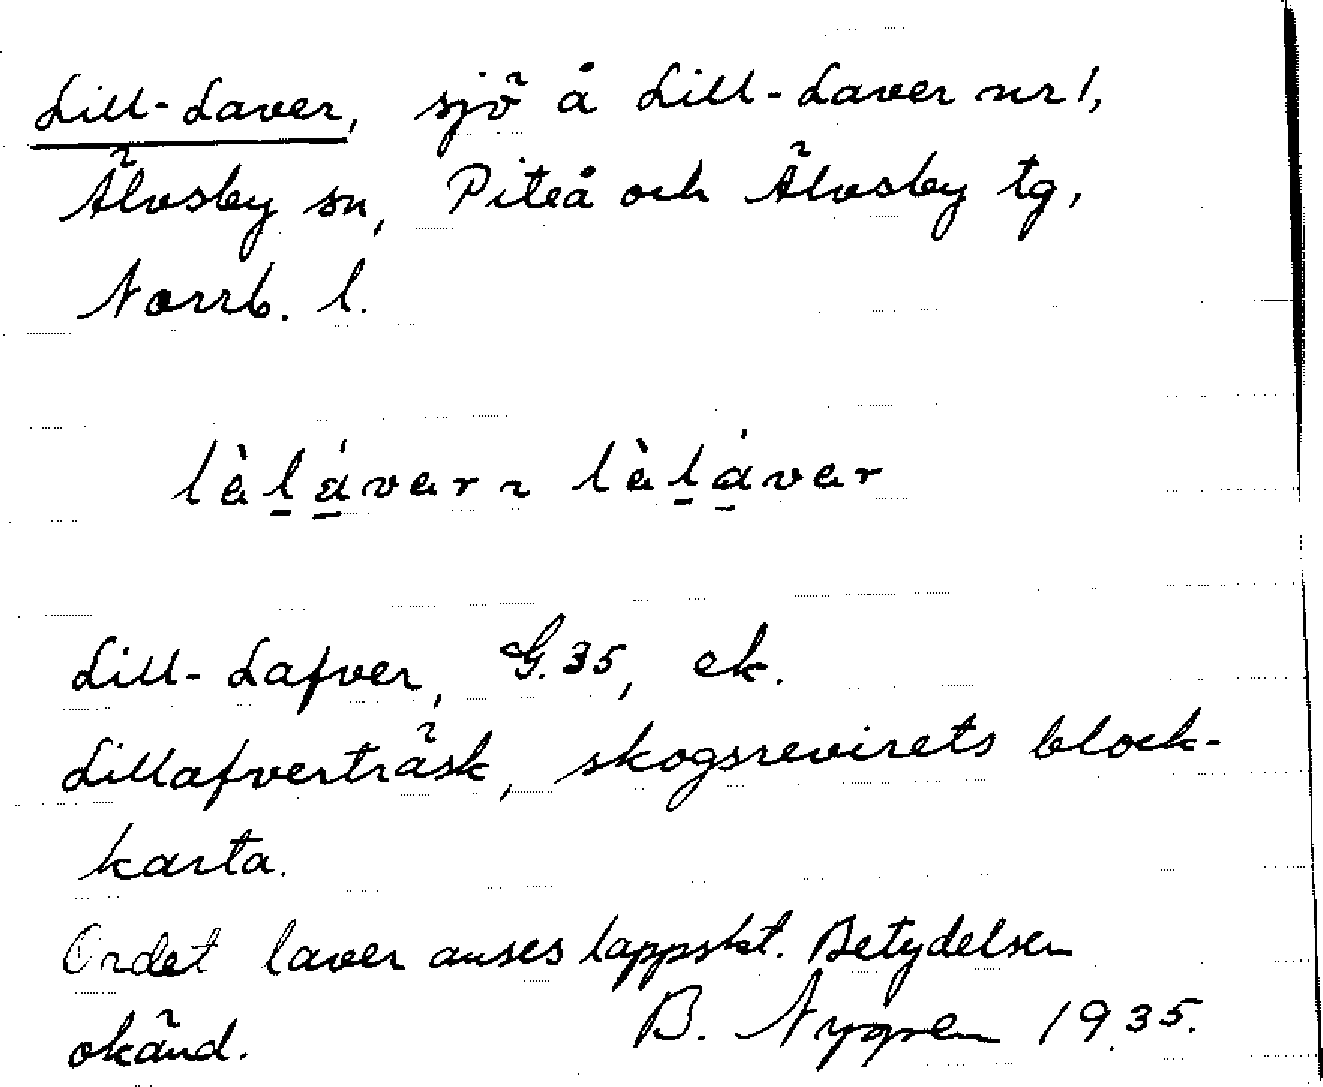 Lill-Laver, sjö å Lill-Laver nr 1,
Älvsby sn, Piteå och Älvsby tg,
Norrb. l.
lèl̠á̠var ~ lèl̠á̠var
Lill-Lafver, G. 35, ek.
Lillafverträsk, skogsrevirets block-
karta.
Ordet laver anses lappskt. Betydelsen
okänd.
B. Nygren 1935.